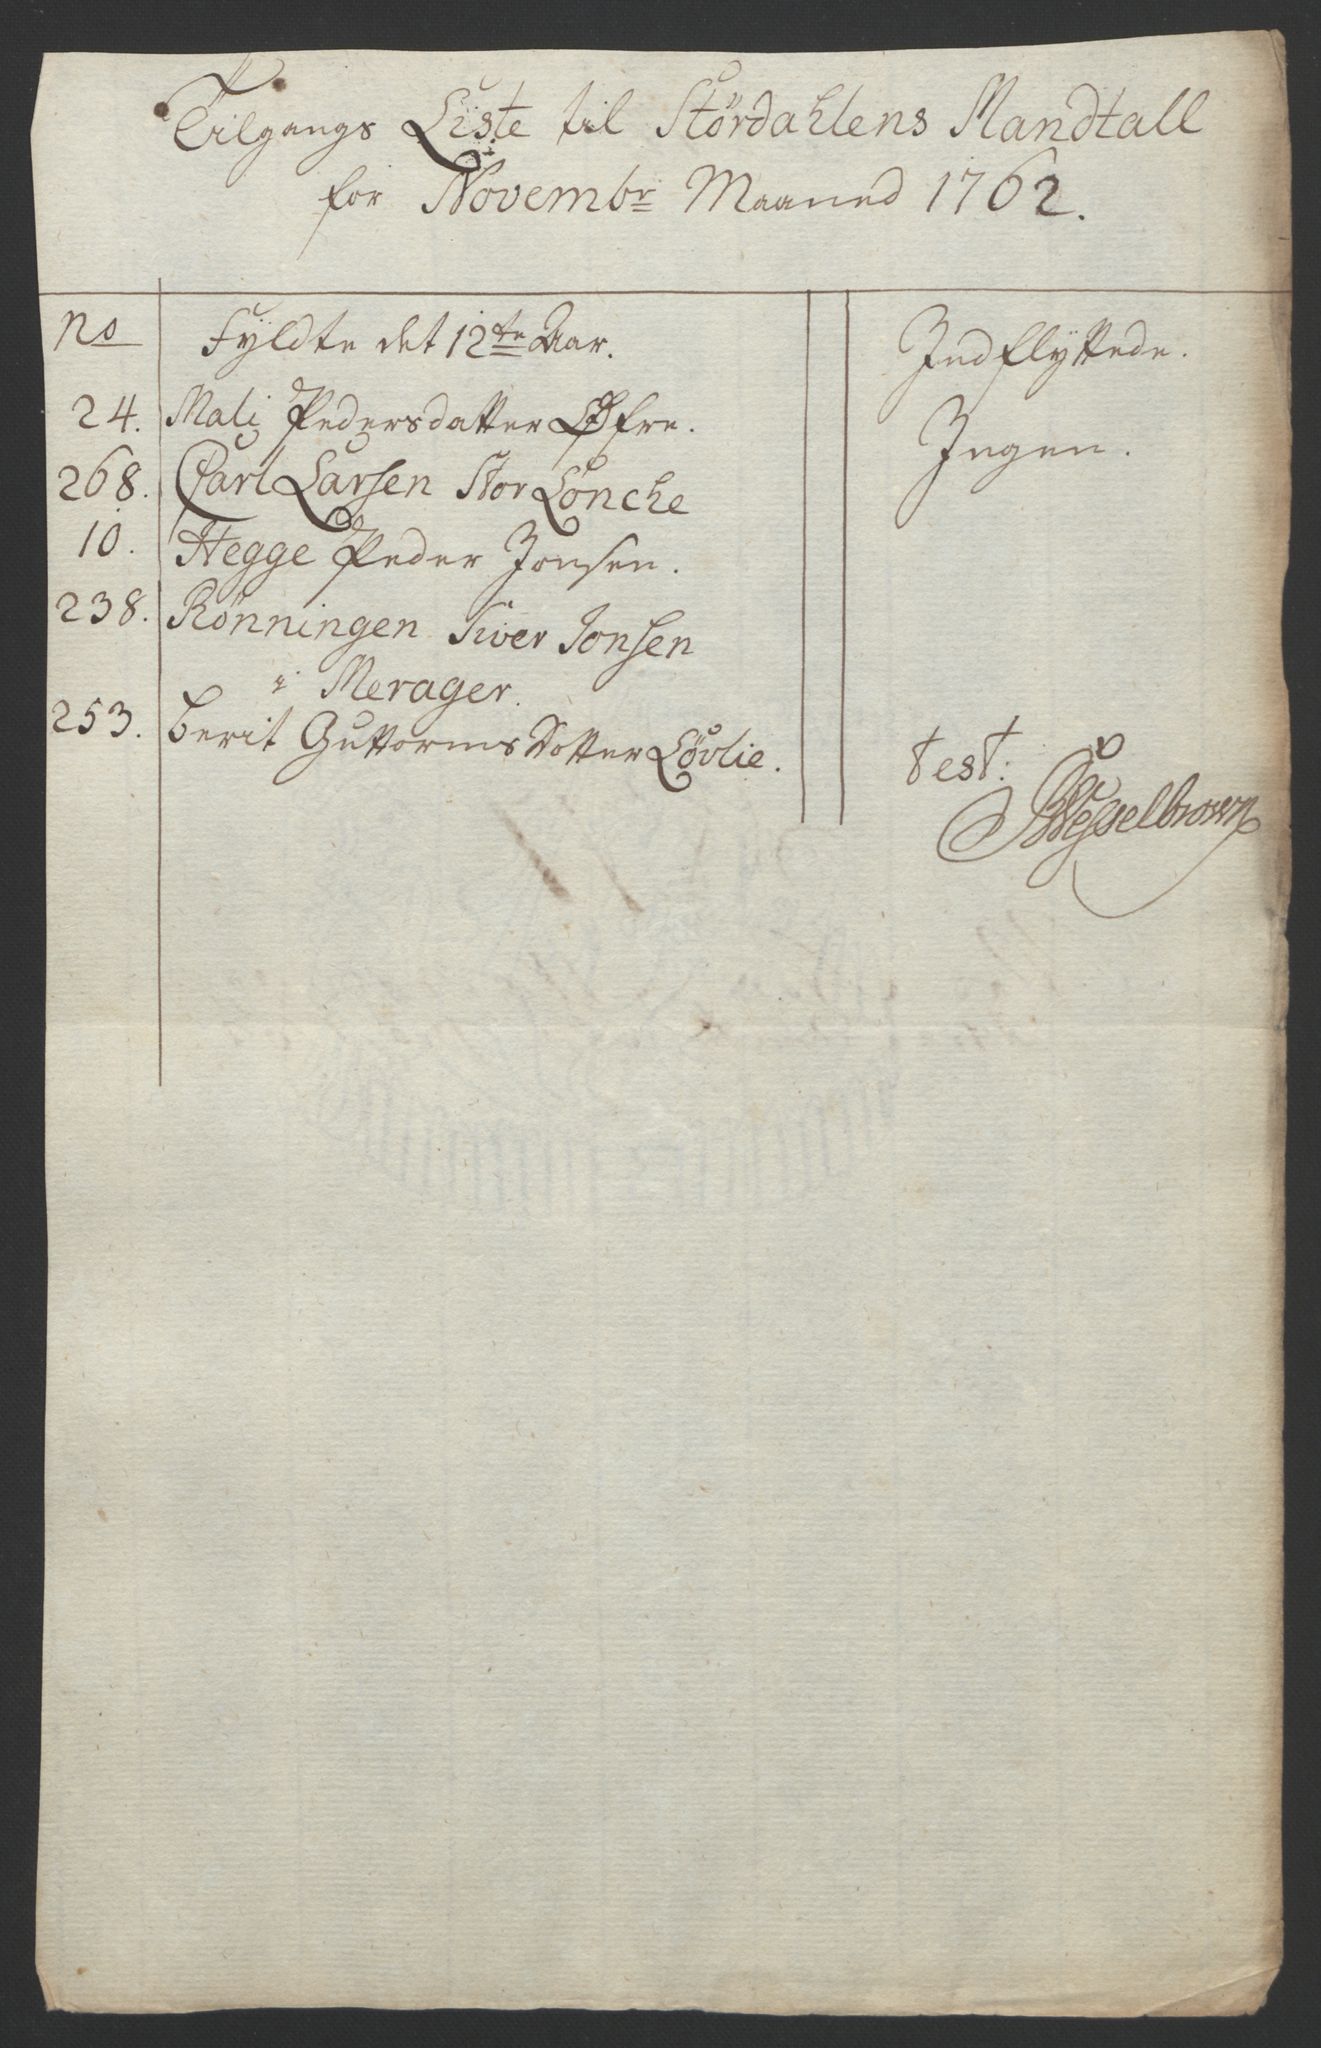 Tilgangs Liste til Stördahlens Mandtall
for Novembr Maaned 1762.
No Fyldte det 12te Aar. Indflyttede.
24. Mali Pedersdatter Øfre. Ingen.
268. Carl Larsen Stor Lönche
10. Hegge Peder Jonsen.
238. Rönningen Siver Jonsen
Merager.
253. berit Guttorms Dotter Lövlie.
test:
Wesselbrown